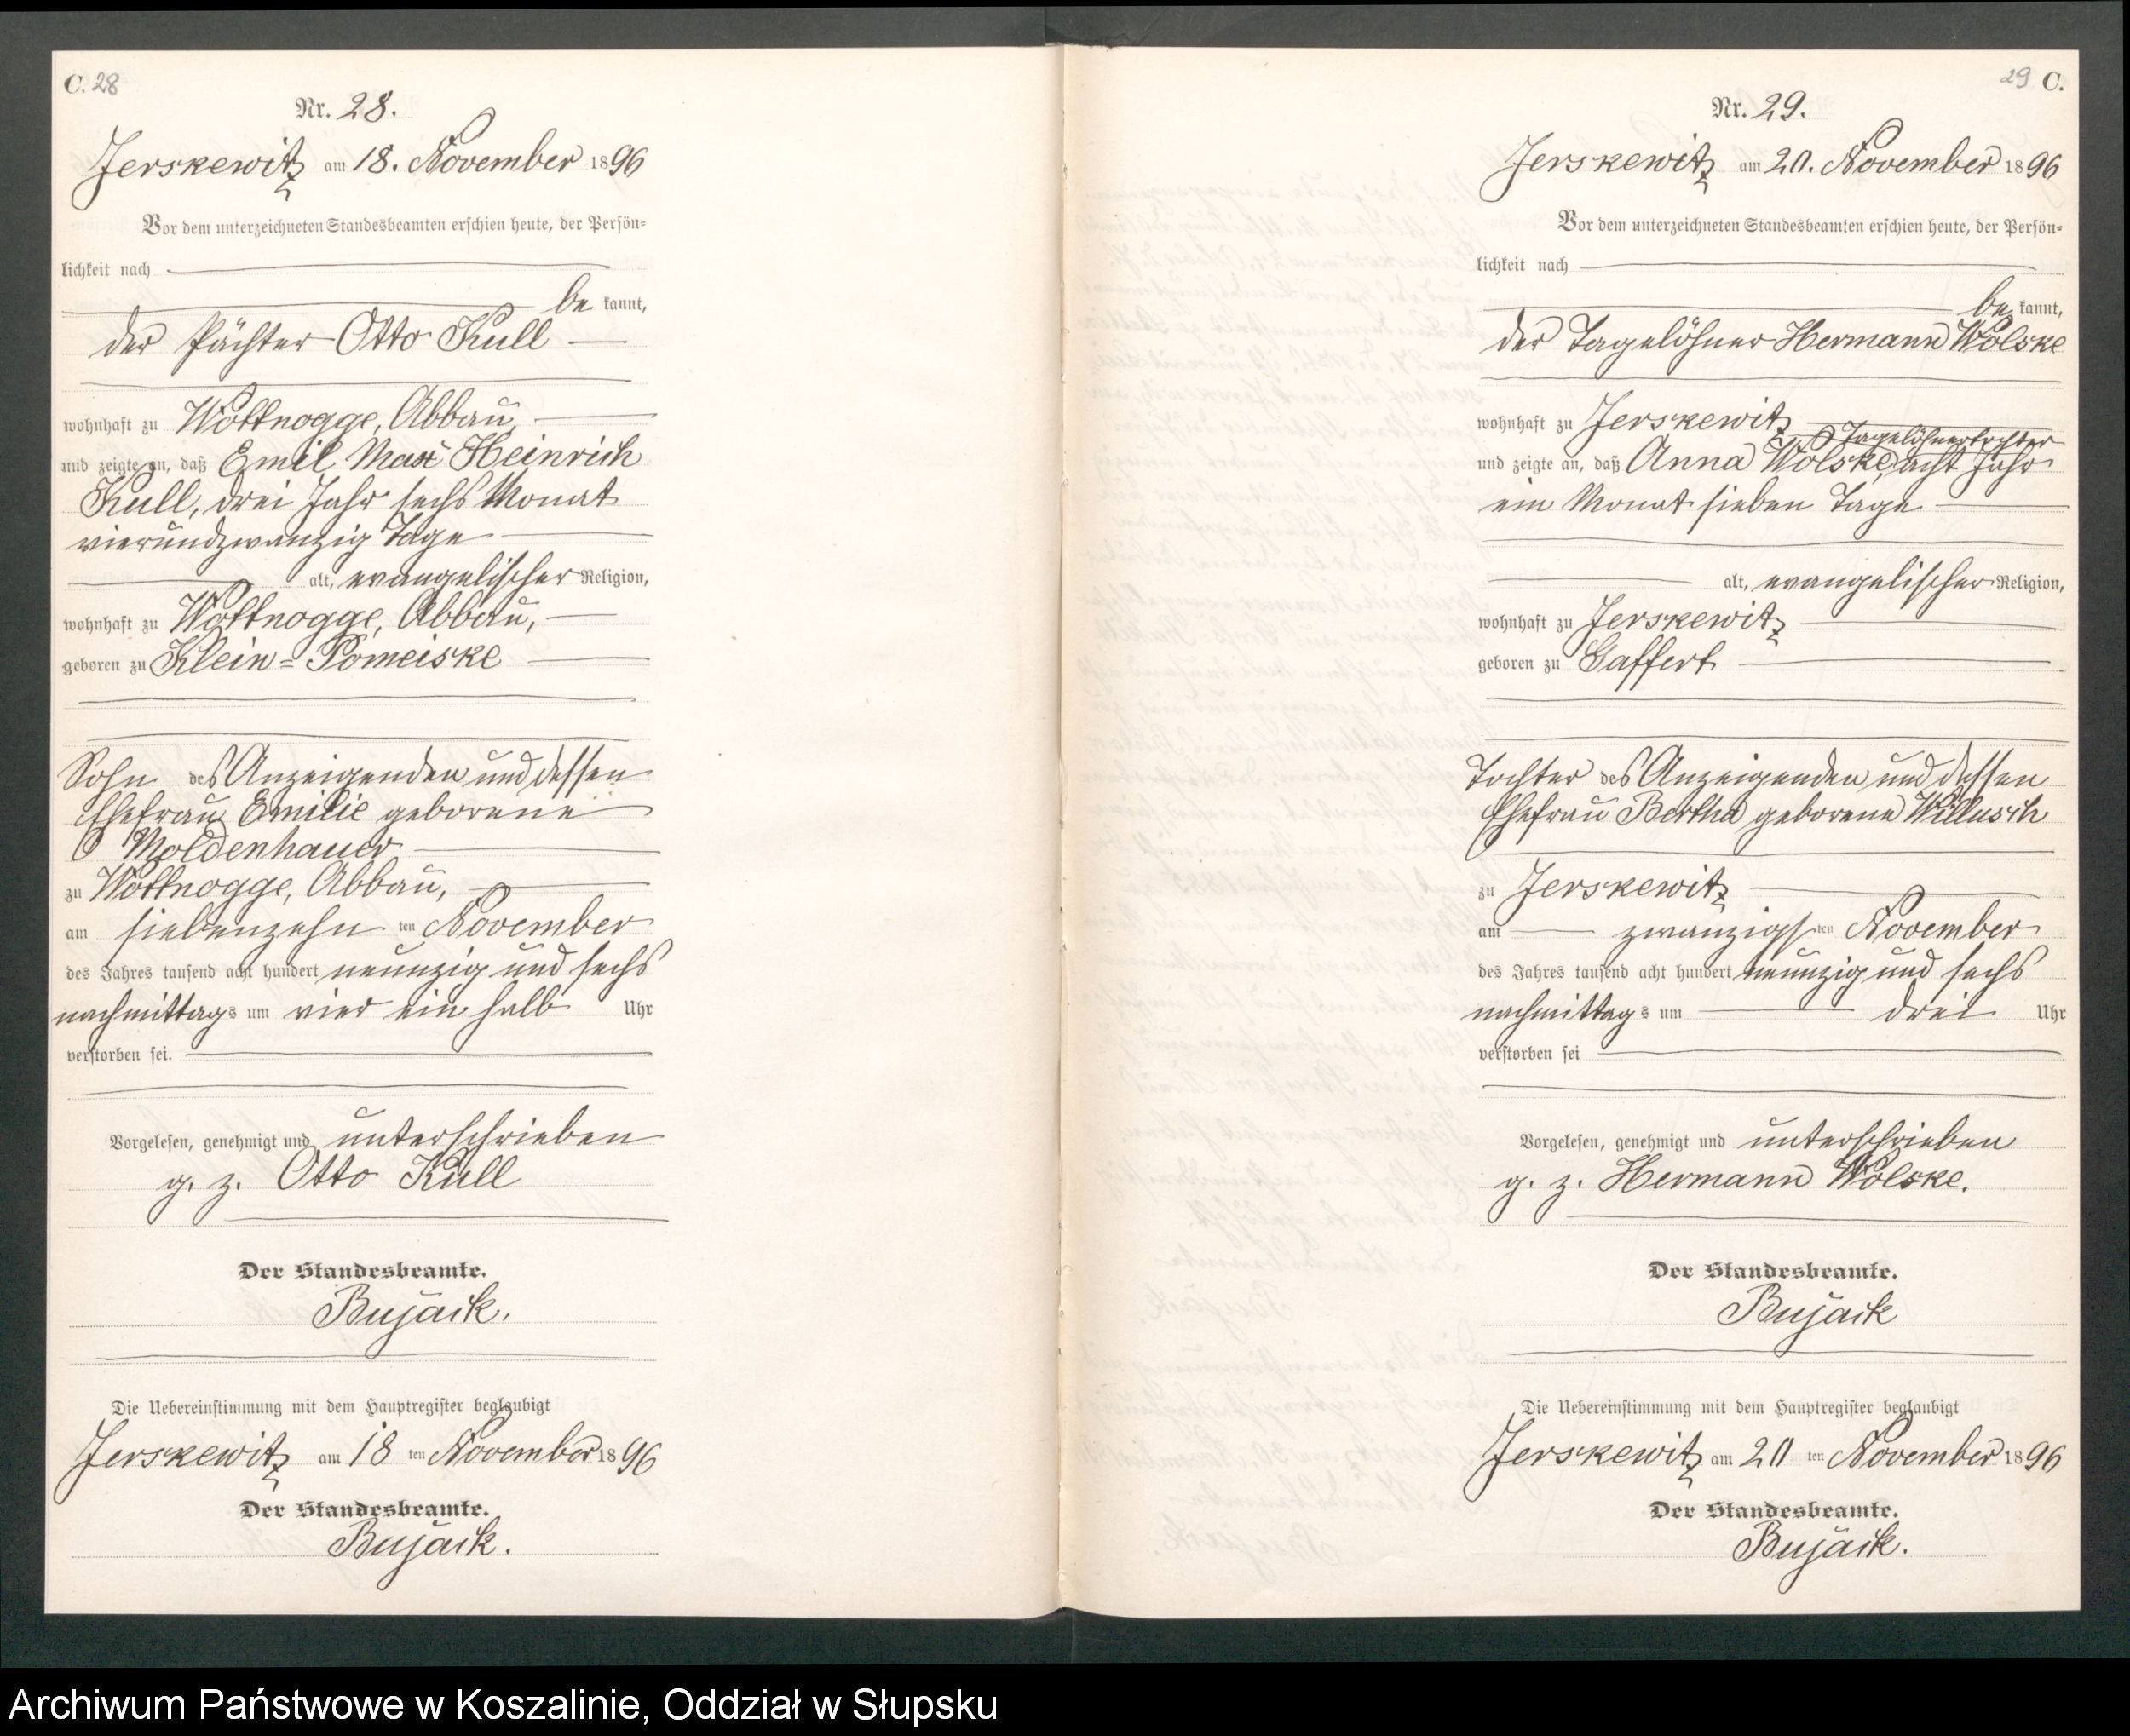 C. 28
Nr. 28.
Jerskewitz am 18. November 1896
Vor dem unterzeichneten Standesbeamten erschien heute, der Persön-
lichkeit nach
be kannt,
der Pächter Otto Kull
wohnhaft zu Wottnogge, Abbau,
und zeigte an, daß Emil Max Heinrich
Kull, drei Jahr sechs Monat
vierundzwanzig Tage
alt, evangelischer Religion,
wohnhaft zu Wottnogge, Abbau,
geboren zu Klein-Pomeiske
Sohn des Anzeigenden und dessen
Ehefrau Emilie geborene
Moldenhauer
zu Wottnogge, Abbau,
am siebenzehn ten November
des Jahres tausend acht hundert neunzig und sechs
nachmittags um vier ein halb Uhr
verstorben sei.
Vorgelesen, genehmigt und unterschrieben
g. z. Otto Kull
Der Standesbeamte.
Bujack.
Die Uebereinstimmung mit dem Hauptregister beglaubigt
Jerskewitz am 18 ten November 1896
Der Standesbeamte.
Bujack.
29 C.
Nr. 29.
Jerskewitz am 20. November 1896
Vor dem unterzeichneten Standesbeamten erschien heute, der Persön-
lichkeit nach
be kannt,
der Tagelöhner Hermann Wolske
wohnhaft zu Jerskewitz
Tagelöhnertochter
und zeigte an, daß Anna Wolske, acht Jahr
ein Monat sieben Tage
alt, evangelischer Religion,
wohnhaft zu Jerskewitz
geboren zu Gaffert
Tochter des Anzeigenden und dessen
Ehefrau Bertha geborene Willusch
zu Jerskewitz
am zwanzigsten November
des Jahres tausend acht hundert neunzig und sechs
nachmittags um drei Uhr
verstorben sei
Vorgelesen, genehmigt und unterschrieben
g. z. Hermann Wolske.
Der Standesbeamte.
Bujack
Die Uebereinstimmung mit dem Hauptregister beglaubigt
Jerskewitz am 20 ten November 1896
Der Standesbeamte.
Bujack.
Archiwum Państwowe w Koszalinie, Oddział w Słupsku